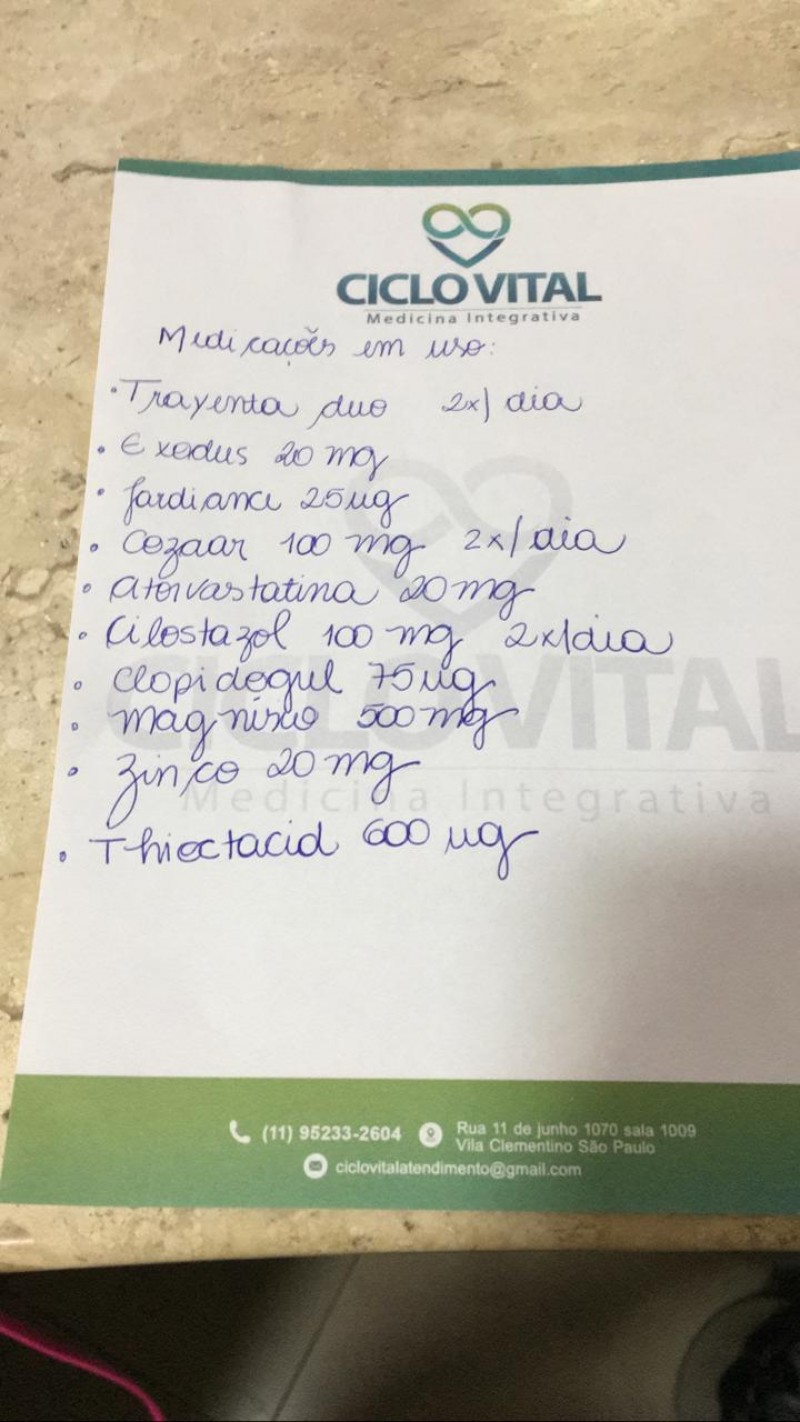 CICLO VITAL
Medicina Integrativa
Medicações em uso:
• Trayenta duo 2x/ dia
• Exodus 20 mg
• Jardiance 25 mg
• Cozaar 100 mg 2x/dia
• Atorvastatina 20 mg
• Cilostazol 100 mg 2x/dia
• Clopidogrel 75 mg
• magnésio 500 mg
• Zinco 20 mg
• Thioctacid 600 mg
CICLO VITAL
Medicina Integrativa
(11) 95233-2604
Rua 11 de junho 1070 sala 1009
Vila Clementino São Paulo
ciclovitalatendimento@gmail.com